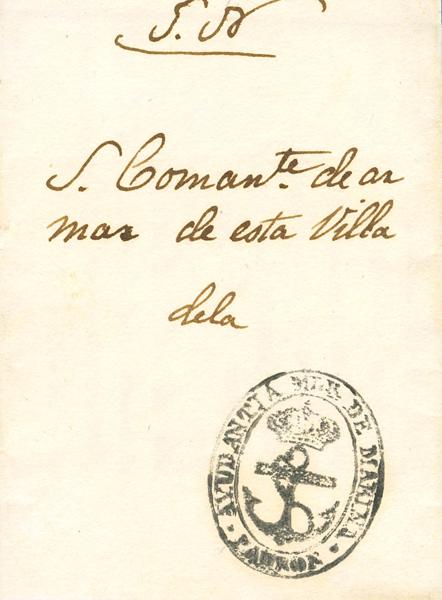 S. N
S. Comante. de ar
mas de esta Villa
dela
AYUDANTIA MIL. DE MARINA
PADRON